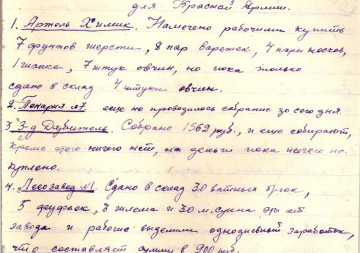 для Красной Армии.
1. Артель Химик. Намечено рабочими купить
7 фунтов шерсти, 8 пар варежек, 4 пары носков,
1 шапка, 7 штук овчин, но пока только
сдано в склад 4 штуки овчин.
2. Пекарня №7 еще не проводилось собрание до сего дня.
3 З-д Дубитель. Собрано 1562 руб., и еще собирают,
кроме этого ничего нет, на деньги пока ничего не
куплено.
4. Лесозавод №1. Сдано в склад 30 ватных брюк,
5 фуфаек, 3 и 30 м. от
завода и рабочие выделили однодневный заработок,
что составляет сумму в 900 руб.